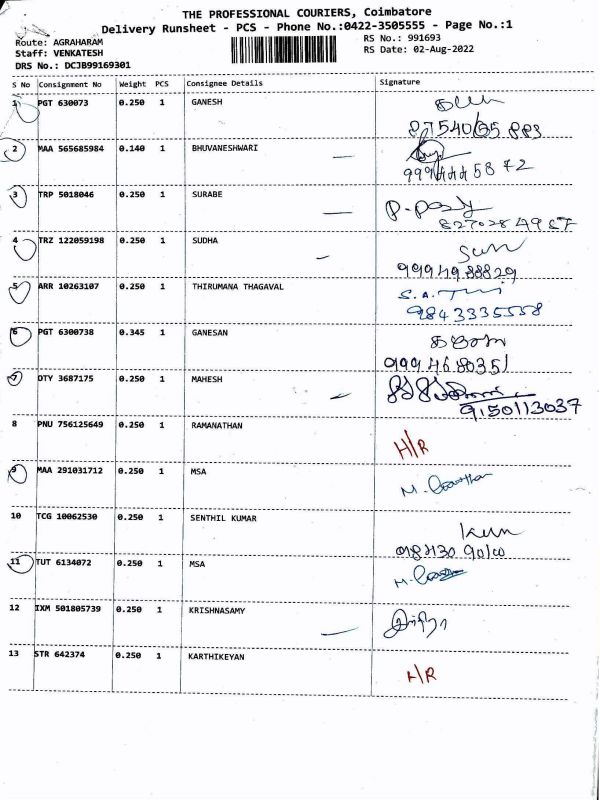 THE PROFESSIONAL COURIERS, Coimbatore
Delivery Runsheet - PCS - Phone No.:0422-3505555 - Page No.:1
Route: AGRAHARAM
Staff: VENKATESH
DRS No.: DCJB99169301
RS No.: 991693
RS Date: 02-Aug-2022
S No Consignment No Weight PCS Consignee Details Signature
1 PGT 630073 0.250 1 GANESH
2 MAA 565685984 0.140 1 BHUVANESHWARI
3 TRP 5018046 0.250 1 SURABE
4 TRZ 122059198 0.250 1 SUDHA
9994988829
5 ARR 10263107 0.250 1 THIRUMANA THAGAVAL
9843335558
6 PGT 6300738 0.345 1 GANESAN
9994680351
7 OTY 3687175 0.250 1 MAHESH
9150113037
8 PNU 756125649 0.250 1 RAMANATHAN H/R
9 MAA 291031712 0.250 1 MSA
10 TCG 10062530 0.250 1 SENTHIL KUMAR
11 TUT 6134072 0.250 1 MSA
12 IXM 501805739 0.250 1 KRISHNASAMY
13 STR 642374 0.250 1 KARTHIKEYAN H/R